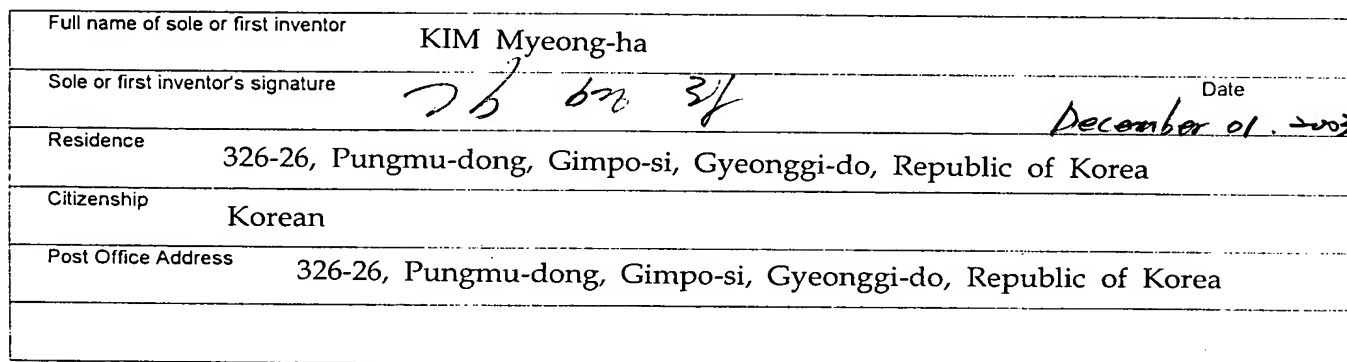 Full name of sole or first inventor KIM Myeong-ha
Sole or first inventor's signature
Date
December 01. 2003
Residence 326-26, Pungmu-dong, Gimpo-si, Gyeonggi-do, Republic of Korea
Citizenship Korean
Post Office Address 326-26, Pungmu-dong, Gimpo-si, Gyeonggi-do, Republic of Korea